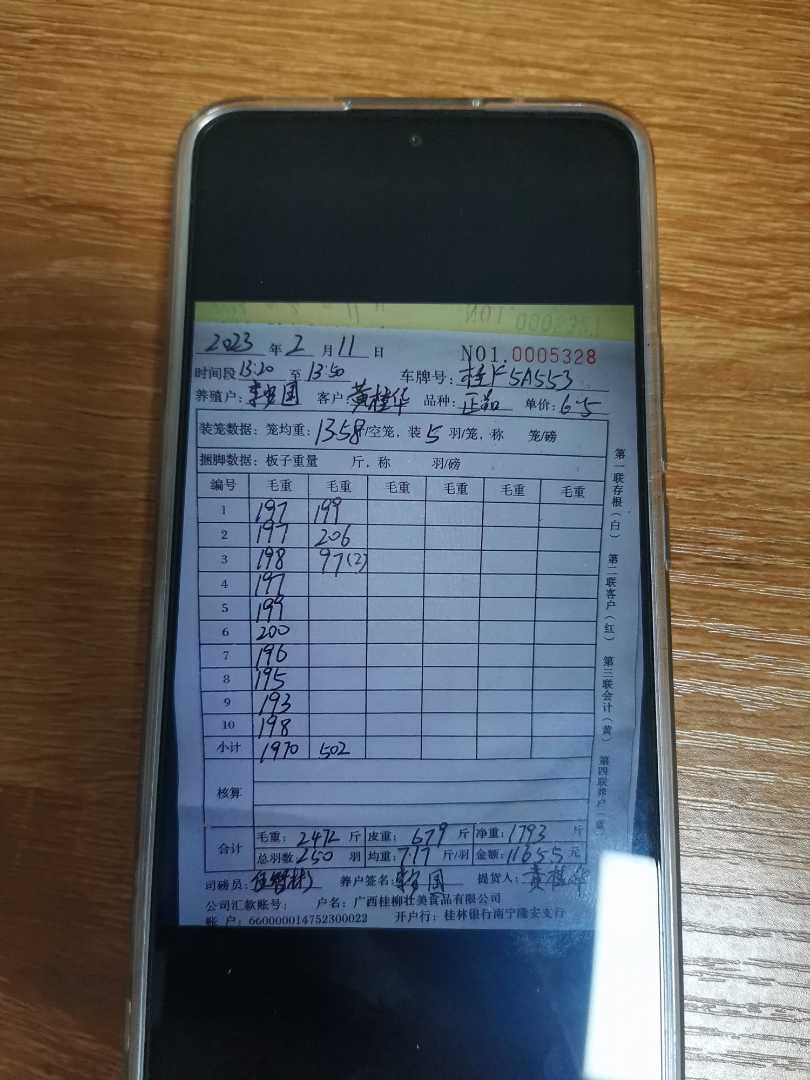 2023年2月11日 NO1.0005328
时间段13:20至13:50 车牌号:桂K5A553
养殖户: 国 客户:黄桂华 品种:正品 单价:6.5
装笼数据:笼均重:13.58/空笼,装5羽/笼,称 笼/磅
捆脚数据:板子重量 斤,称 羽/磅
编号 毛重 毛重 毛重 毛重 毛重 毛重
1 197 199
2 197 206
3 198 97(2)
4 197
5 199
6 200
7 196
8 195
9 193
10 198
小计 1970 502
核算
合计 毛重:2472斤 皮重:679斤 净重:1793斤
总羽数250羽 均重:7.17斤/羽 金额:11655元
司磅员: 养户签名: 国 提货人:黄桂华
公司汇款账号: 户名:广西桂柳壮美食品有限公司
账户:660000014752300022 开户行:桂林银行南宁隆安支行
第一联存根(白) 第二联客户(红) 第三联会计(黄) 第四联养户